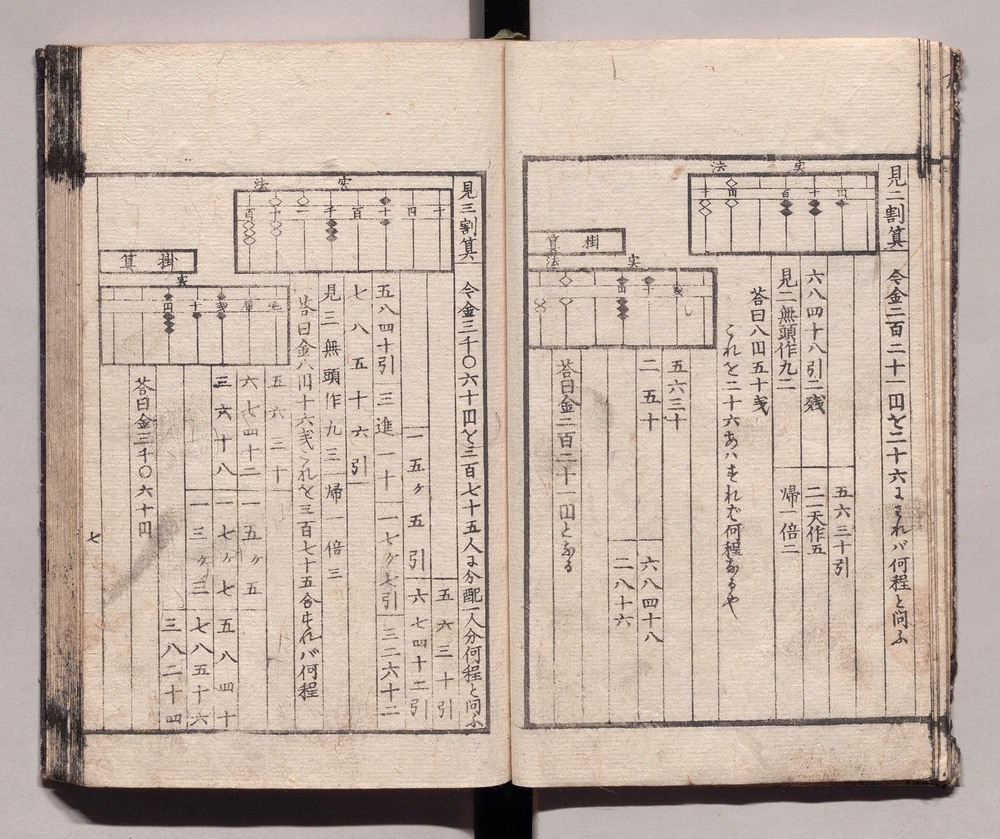 見二割算
今金二百二十一円を二十六にわれバ何程と問ふ
法 実
十 円 百 十 円
五六三十引
六八四十八引二残
二二天作五
見二無頭作九二
帰一倍二
答曰八円五十戋
これを二十六あハすれば何程なるや
掛算
法 実
五六三十
六八四十八
二五十
二八十六
答曰金二百二十一円となる
見三割算
今金三千〇六十円を三百七十五人に分配一人分何程と問ふ
法 実
百 十 一 千 百 十 円
五六三十引
一五ヶ五引
六七四十二引
五八四十引三進一十
一七ヶ七引
三二六十二
七八五十六引
見三無頭作九三
帰一倍三
答曰金八円十六戋これを三百七十五合すれバ何程
掛算
実
五六三十
六七四十二
一五ヶ五
三六十八
一七ヶ七
五八四十
一三ヶ三
七八五十六
三八二十四
答曰金三千〇六十円
七